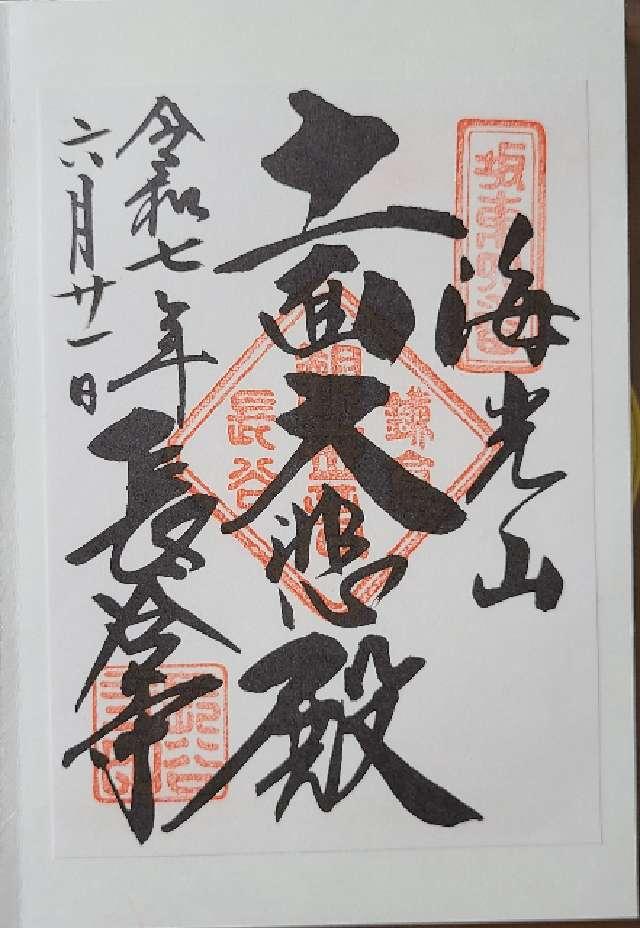 海光山
十一面大悲殿
長谷寺
令和七年
六月廿一日
鎌倉
長谷